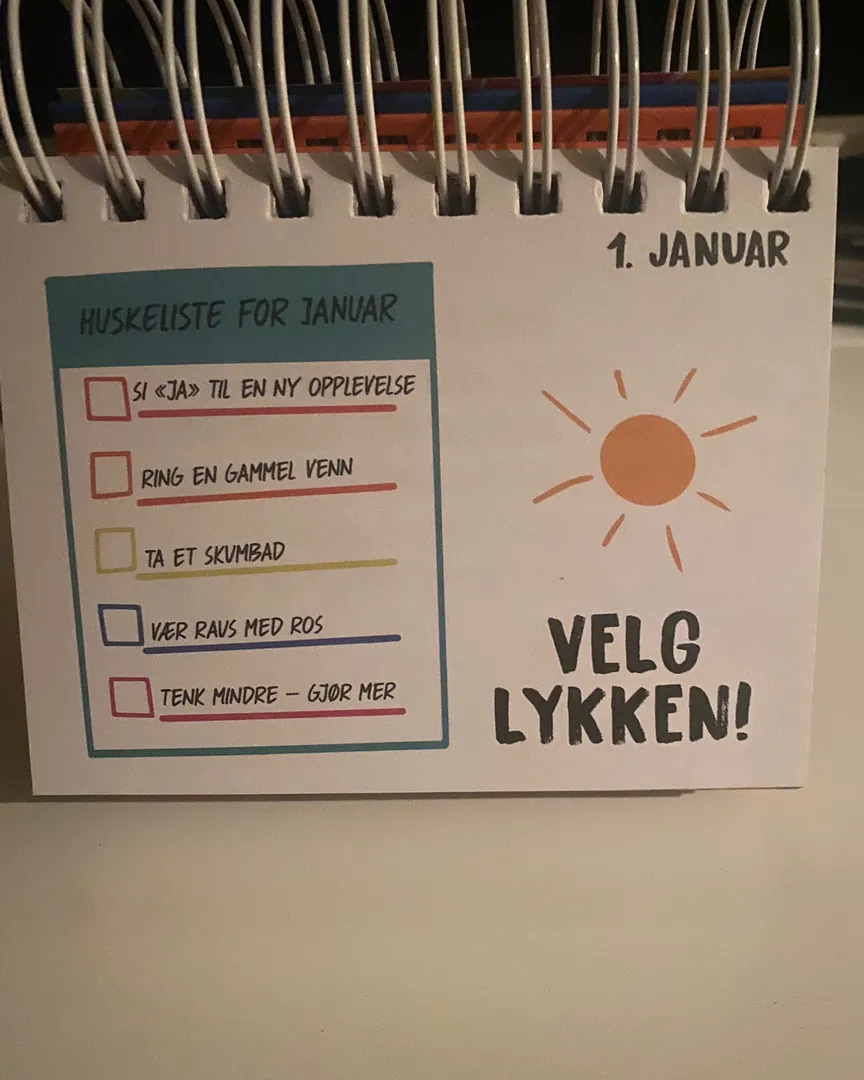 1. JANUAR
HUSKELISTE FOR JANUAR
SI «JA» TIL EN NY OPPLEVELSE
RING EN GAMMEL VENN
TA ET SKUMBAD
VÆR RAUS MED ROS
TENK MINDRE – GJØR MER
VELG
LYKKEN!